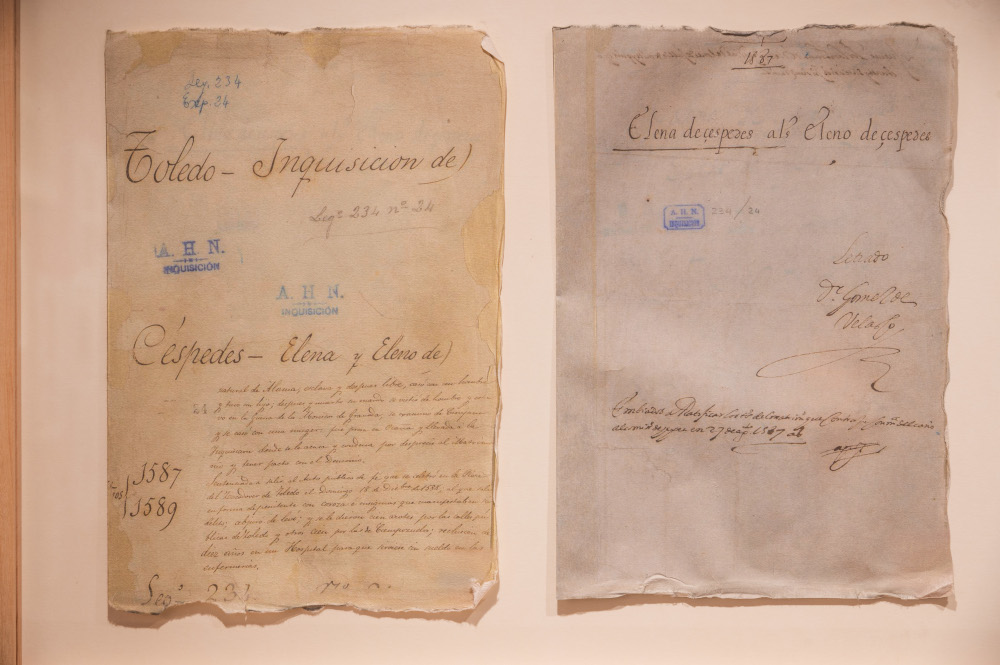 Leg. 234
Exp. 24
Toledo - Inquisicion de)
Legº 234 nº 24
A. H. N.
INQUISICIÓN
A. H. N.
INQUISICIÓN
Céspedes - Elena y Eleno de)
natural de Alama, esclava y despues libre, casó con un hombre
y tuvo un hijo; despues y muerto su marido se vistió de hombre y
en la guerra de los Moriscos de Granada; se examinó de Cirujano
y se casó con una muger. fue presa en Ocaña y llevada a la
Inquisicion donde se la acusa y condena por desprecio al Matrimo-
nio y tener pacto con el Demonio.
Sentenciada a salir al Auto publico de fé, que se celebró en la Plaza
del Zocodover de Toledo el Domingo 18 de Diciembre de 1588, al que salió
en forma de penitente con coroza e insignias que manifestaban su
delito, abjuró de levi, y se le dieron cien azotes por las calles pú-
blicas de Toledo y otros cien por las de Cienpozuelos; reclusion
diez años en un Hospital para que sirviera sin sueldo en las
enfermerias.
24
1587
1589
Legº 233
1587
Elena de cespedes als Eleno de cespedes
A. H. N.
INQUISICIÓN
234/24
Letrado
Dr Gomez de
Velasco
en 27 de 1587